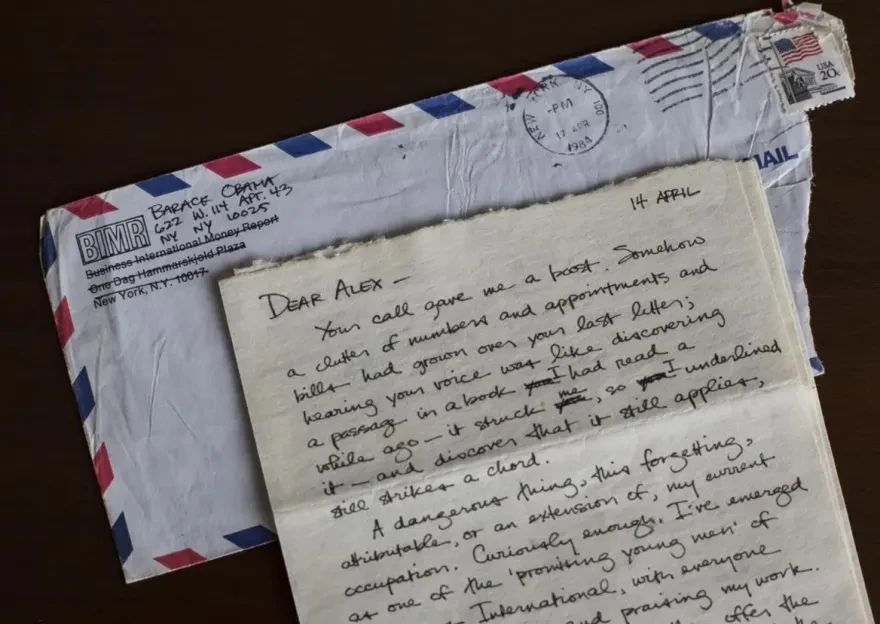 BARACK OBAMA
622 W. 114 APT. 43
NY NY 10025
BIMR
Business International Money Report
One Dag Hammarskjold Plaza
New York, N.Y. 10017
NEW YORK, NY 100
-PM
17 APR
1984
USA
20c
MAIL
14 APRIL
DEAR ALEX —
Your call gave me a boost. Somehow
a clutter of numbers and appointments and
bills had grown over your last letter;
hearing your voice was like discovering
a passage in a book I had read a
while ago — it struck me, so I underlined
it — and discover that it still applies,
still strikes a chord.
A dangerous thing, this forgetting,
attributable, or an extension of, my current
occupation. Curiously enough, I've emerged
as one of the 'promising young men' of
International, with everyone
and praising my work.
offer the